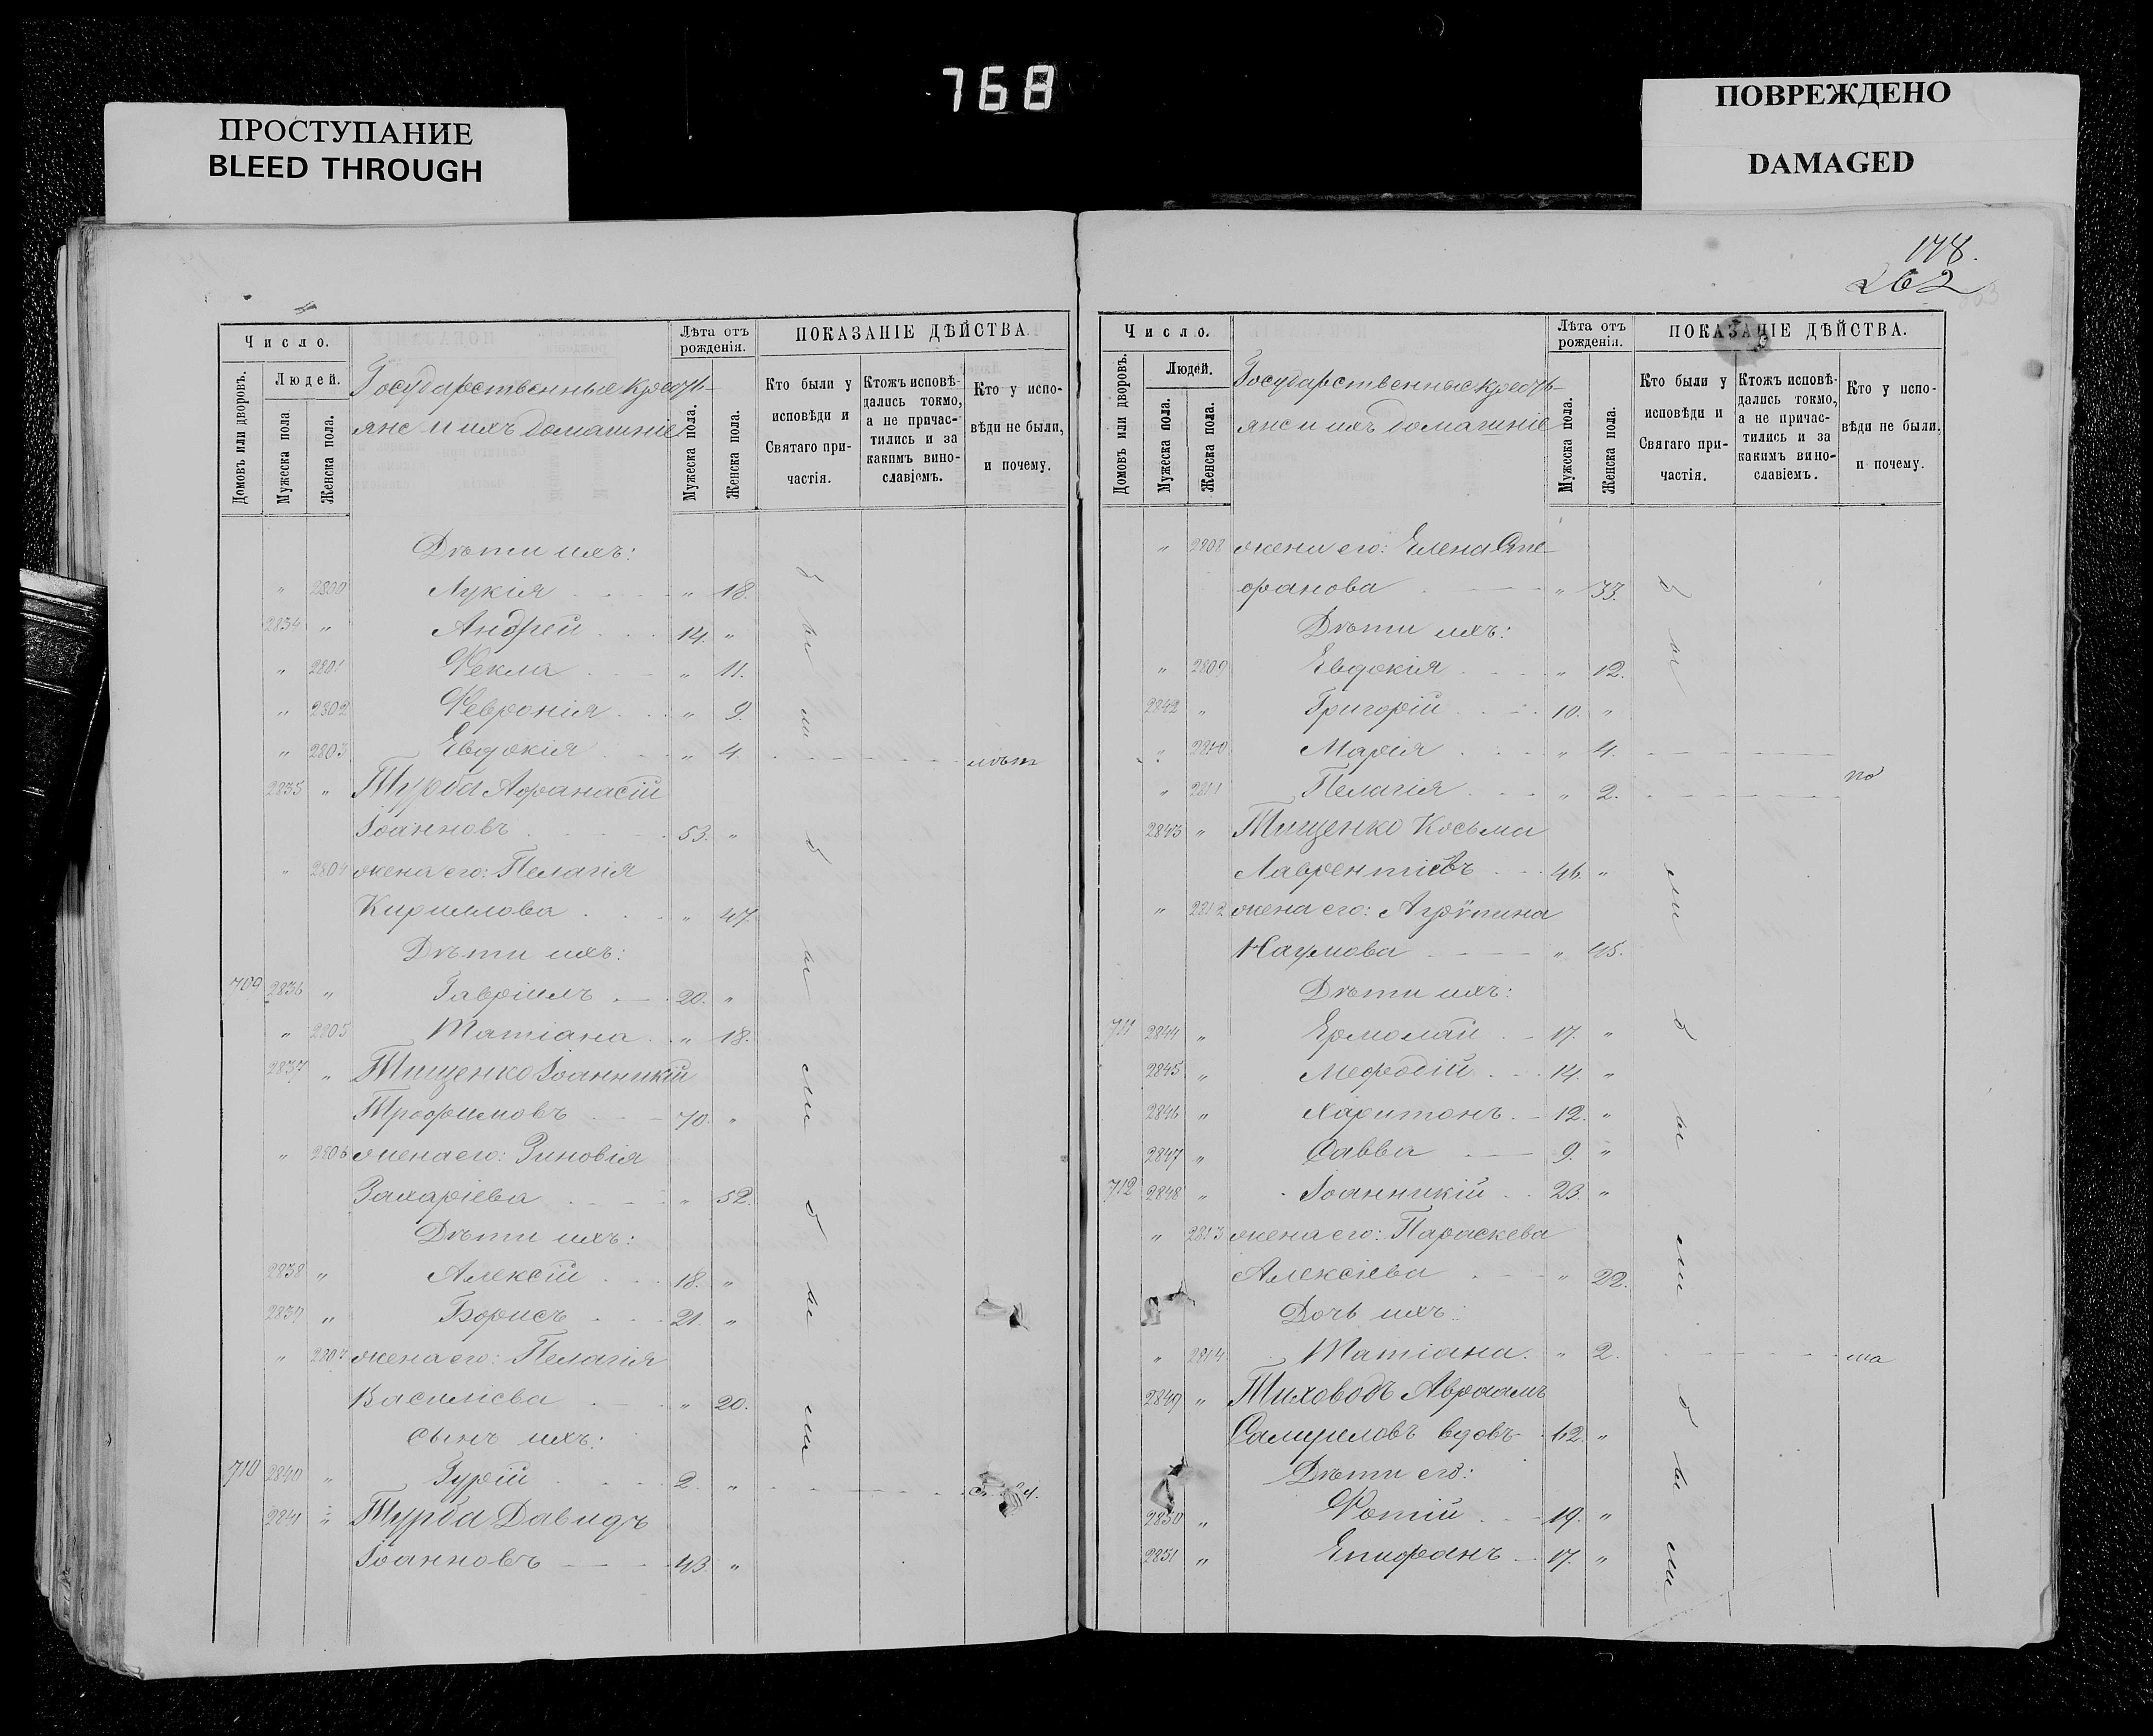 768
ПРОСТУПАНИЕ
BLEED THROUGH
ПОВРЕЖДЕНО
DAMAGED
Число.
Людей.
Домовъ или дворовъ.
Мужеска пола
Женска пола.
Государственные кресть-
яне и ихъ домашніе
Лѣта отъ рожденія.
Мужеска пола.
Женска пола.
ПОКАЗАНІЕ ДѢЙСТВА.
Кто были у исповѣди и Святаго при-частія.
Ктожъ исповѣ-дались токмо, а не причас-тились и за какимъ вино-славіемъ.
Кто у испо-вѣди не были, и почему.
Дѣти ихъ:
" 2800 Лукія " 18.
2834 " Андрей 14. "
" 2801 Ѳекла " 11.
" 2802 Ѳевронія " 9.
" 2803 Евдокія " 4
2835 " Турба Афанасій
Іоанновъ 53. "
" 2804 жена его: Пелагія
Кириллова " 47.
Дѣти ихъ:
709 2836 " Гавріилъ 20. "
" 2805 Татіана " 18.
2837 " Тищенко Іоанникій
Трофимовъ 70. "
" 2806 жена его: Зиновія
Захаріева " 52.
Дѣти ихъ:
2838 " Алексій 18. "
2839 " Борисъ 21. "
" 2807 жена его: Пелагія
Василіева " 20.
Сынъ ихъ:
710 2840 " Гурій 2. "
2841 " Турба Давидъ
Іоанновъ 43. "
были
были
были
178.
262
Число.
Людей.
Домовъ или дворовъ.
Мужеска пола.
Женска пола.
Государственные кресть-
яне и ихъ домашніе
Лѣта отъ рожденія.
Мужеска пола.
Женска пола.
ПОКАЗАНІЕ ДѢЙСТВА.
Кто были у исповѣди и Святаго при-частія.
Ктожъ исповѣ-дались токмо, а не причас-тились и за какимъ вино-славіемъ.
Кто у испо-вѣди не были, и почему.
" 2808 жена его: Елена Сте-
фанова " 33.
Дѣти ихъ:
" 2809 Евдокія " 12.
2842 " Григорій 10. "
" 2810 Марія " 4.
" 2811 Пелагія " 2. по
2843 " Тищенко Косьма
Лаврентіевъ 46. "
" 2812 жена его: Агрѵпина
Наумова " 45.
Дѣти ихъ:
711 2844 " Ермолай 17. "
2845 " Меѳодій 14. "
2846 " Харитонъ 12. "
2847 " Савва 9. "
712 2848 " Іоанникій 23. "
" 2813 жена его: Параскева
Алексіева " 22.
Дочь ихъ:
" 2814 Татіана " 2.
2849 " Тиховодъ Авраамъ
Самуиловъ вдовъ 62. "
Дѣти его:
2850 " Фотій 19. "
2851 " Епифанъ 17. "
были
были
были